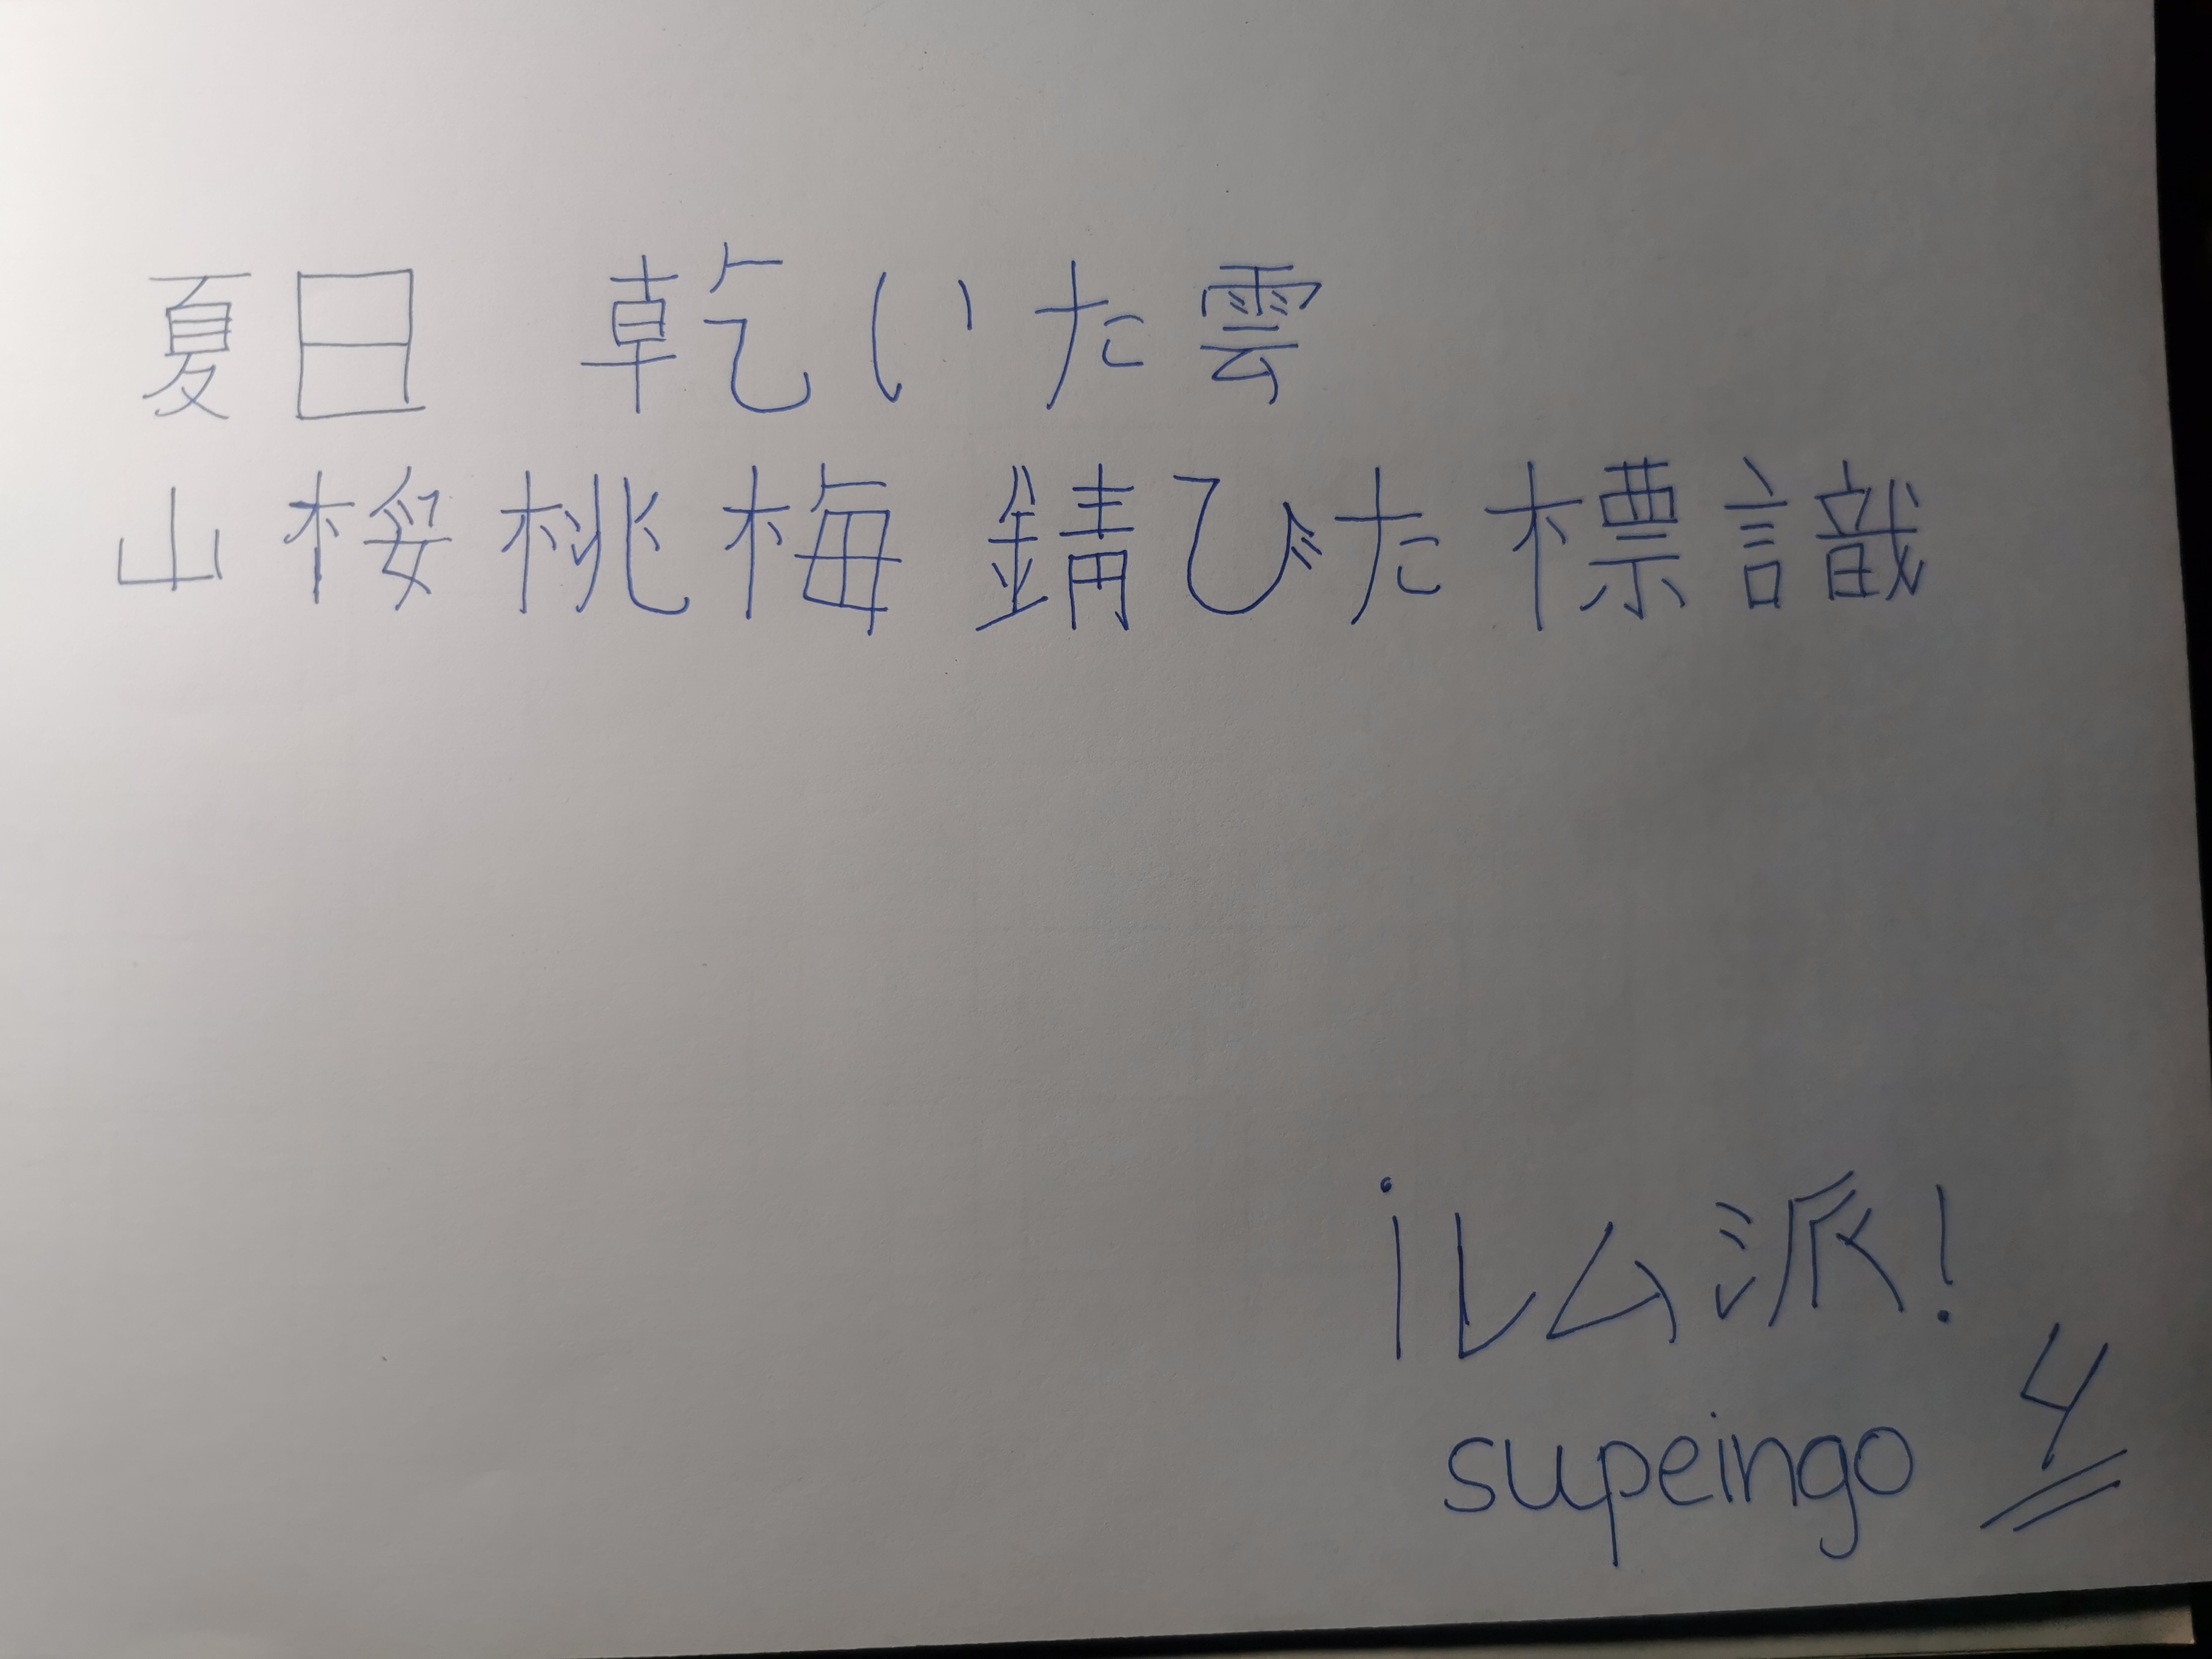 夏日 乾いた雲
山桜桃梅 錆びた標識
iルム派!
supeingo